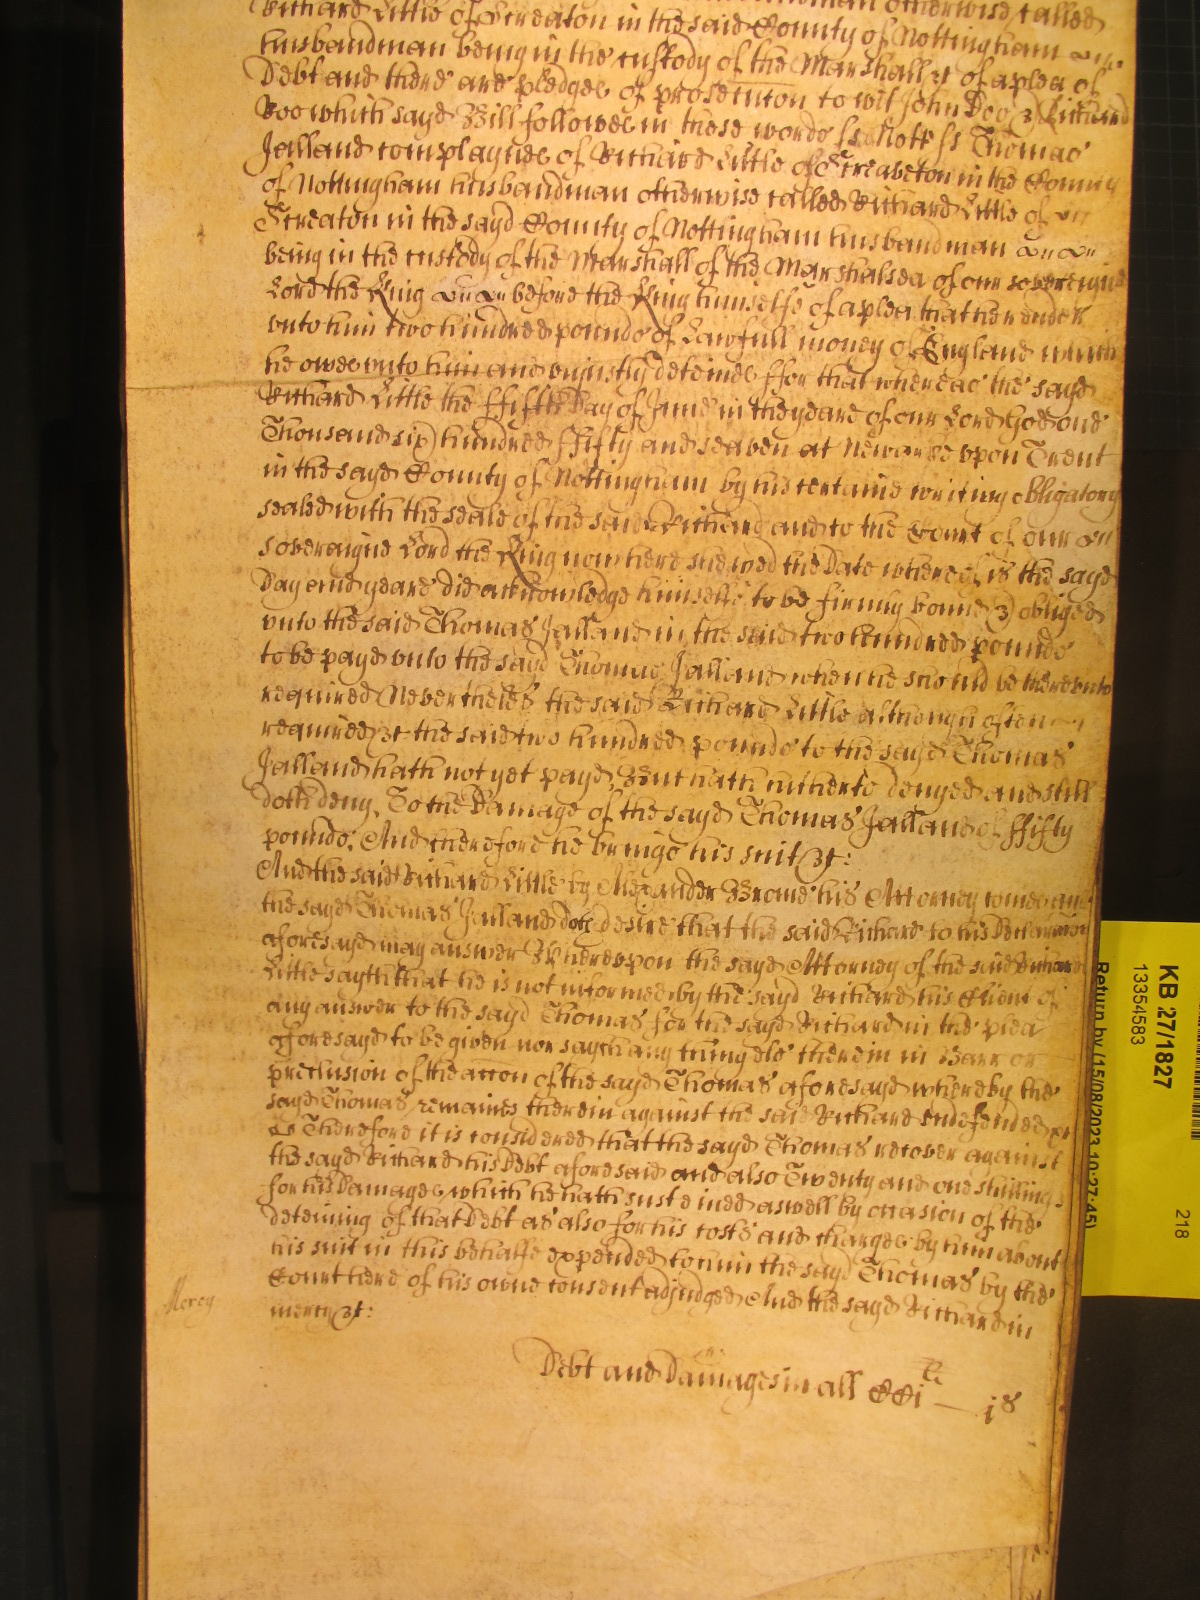 Richard Little of Screaton in the said County of Nottingham
husbandman being in the custody of the Marshall &c of a plea of
Debt and there are pledges of prosecution to wit John Doo & Richard
Roo which sayd Bill followes in these words ss Nott ss Thomas
Jalland complaynes of Richard Little of Screaveton in the County
of Nottingham husbandman otherwise called Richard Little of
Screaton in the sayd County of Nottingham husbandman
being in the custody of the Marshall of the Marshalsea of our sovereigne
Lord the King before the King himselfe of a plea that he render
unto him two hundred pounds of Lawfull money of England which
he owes unto him and unjustly deteines ffor that whereas the sayd
Richard Little the ffifth Day of June in the yeare of our Lord God one
Thousand six hundred ffifty and seaven at Newarke upon Trent
in the sayd County of Nottingham by his certaine writing obligatory
sealed with the seale of the said Richard and to the Court of our
sovereigne Lord the King now here shewed the Date whereof is the sayd
Day and yeare did acknowledge himselfe to be firmly bound & obliged
unto the said Thomas Jalland in the said two hundred pounds
to be payd unto the sayd Thomas Jalland when he should be thereunto
required Neverthelés the said Richard Little although often
required &c the said two hundred pounds to the sayd Thomas
Jalland hath not yet payd, But hath hitherto denyed and still
doth deny, To the Damage of the sayd Thomas Jalland of ffifty
pounds: And therefore he brings his suit &c:
And the said Richard Little by Alexander Brome his Attorney comes and
the sayd Thomas Jalland doth desire that the said Richard to his Declaracion
aforesayd may answer Whereupon the sayd Attorney of the said Richard
Little sayth that he is not informed by the sayd Richard his Client of
any answer to the sayd Thomas for the sayd Richard in the plea
aforesayd to be given nor sayth any thing els therein in Barr or
preclusion of the accon of the sayd Thomas aforesayd whereby the
sayd Thomas remaines therein against the said Richard undefended
&c Therefore it is considered that the sayd Thomas recover against
the sayd Richard his Debt aforesaid and also Twenty and one shillings
for his Damages which he hath susteined aswell by occasion of the
deteining of that Debt as also for his costs and charges by him about
his suit in this behalfe expended to him the sayd Thomas by the
Court here of his owne consent adjudged And the sayd Richard in
mercy &c:
Mercy
Debt and Damages in all CCi li — is
KB 27/1827
13354583
Return by (15/08/2023 10:27:45)
218